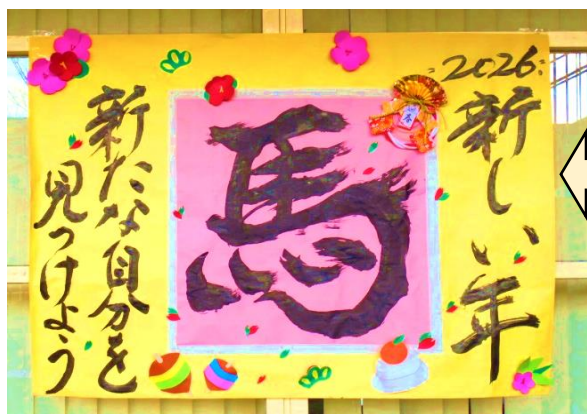 2026
新しい年
馬
新たな自分を
見つけよう